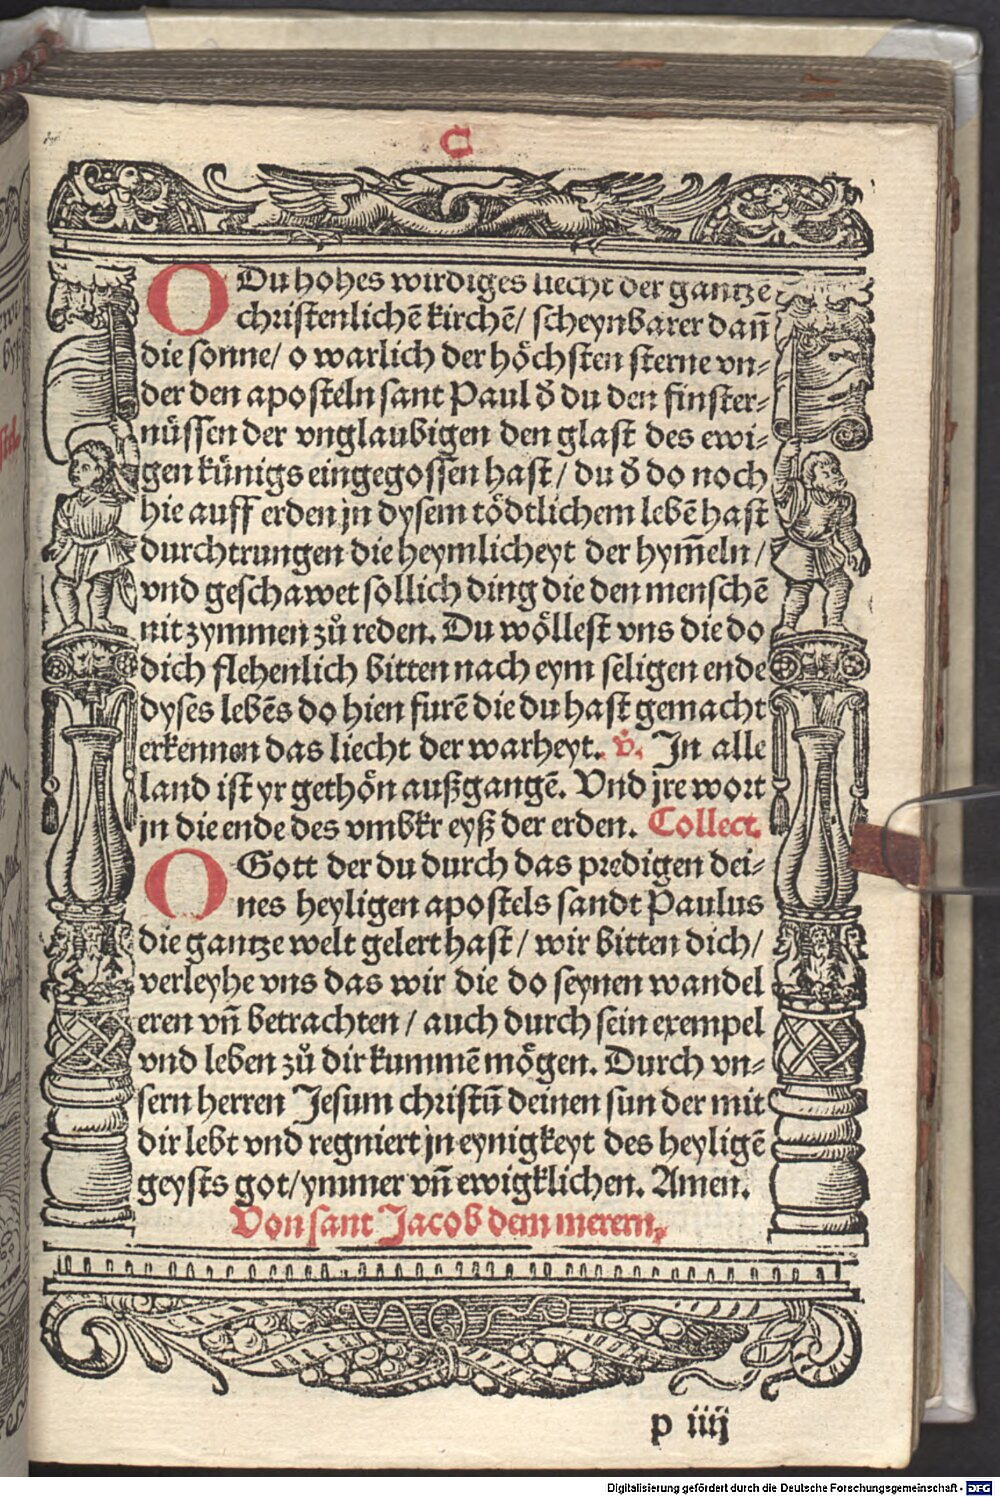 C
O Du hohes wirdiges liecht der gantze
christenlichē kirchē/ scheynbarer dañ
die sonne/ o warlich der höchsten sterne vn⸗
der den aposteln sant Paul d̕ du den finster⸗
nüssen der vnglaubigen den glast des ewi⸗
gen künigs eingegossen hast/ du d̕ do noch
hie auff erden jn dysem tödtlichem lebē hast
durchtrungen die heymlicheyt der hym̄eln/
vnd geschawet sollich ding die den menschē
nit zymmen zů reden. Du wöllest vns die do
dich flehenlich bitten nach eym seligen ende
dyses lebēs do hien furē die du hast gemacht
erkennen das liecht der warheyt. v̕. In alle
land ist yr gethön außgangē. Vnd jre wort
jn die ende des vmbkreyß der erden. Collect.
O Gott der du durch das predigen dei⸗
nes heyligen apostels sandt Paulus
die gantze welt gelert hast/ wir bitten dich/
verleyhe vns das wir die do seynen wandel
eren vñ betrachten/ auch durch sein exempel
vnd leben zů dir kummē mögen. Durch vn⸗
sern herren Jesum christū deinen sun der mit
dir lebt vnd regniert jn eynigkeyt des heyligē
geysts got/ ymmer vñ ewigklichen. Amen.
Von sant Jacob dem merern.
p iiij
Digitalisierung gefördert durch die Deutsche Forschungsgemeinschaft - DFG